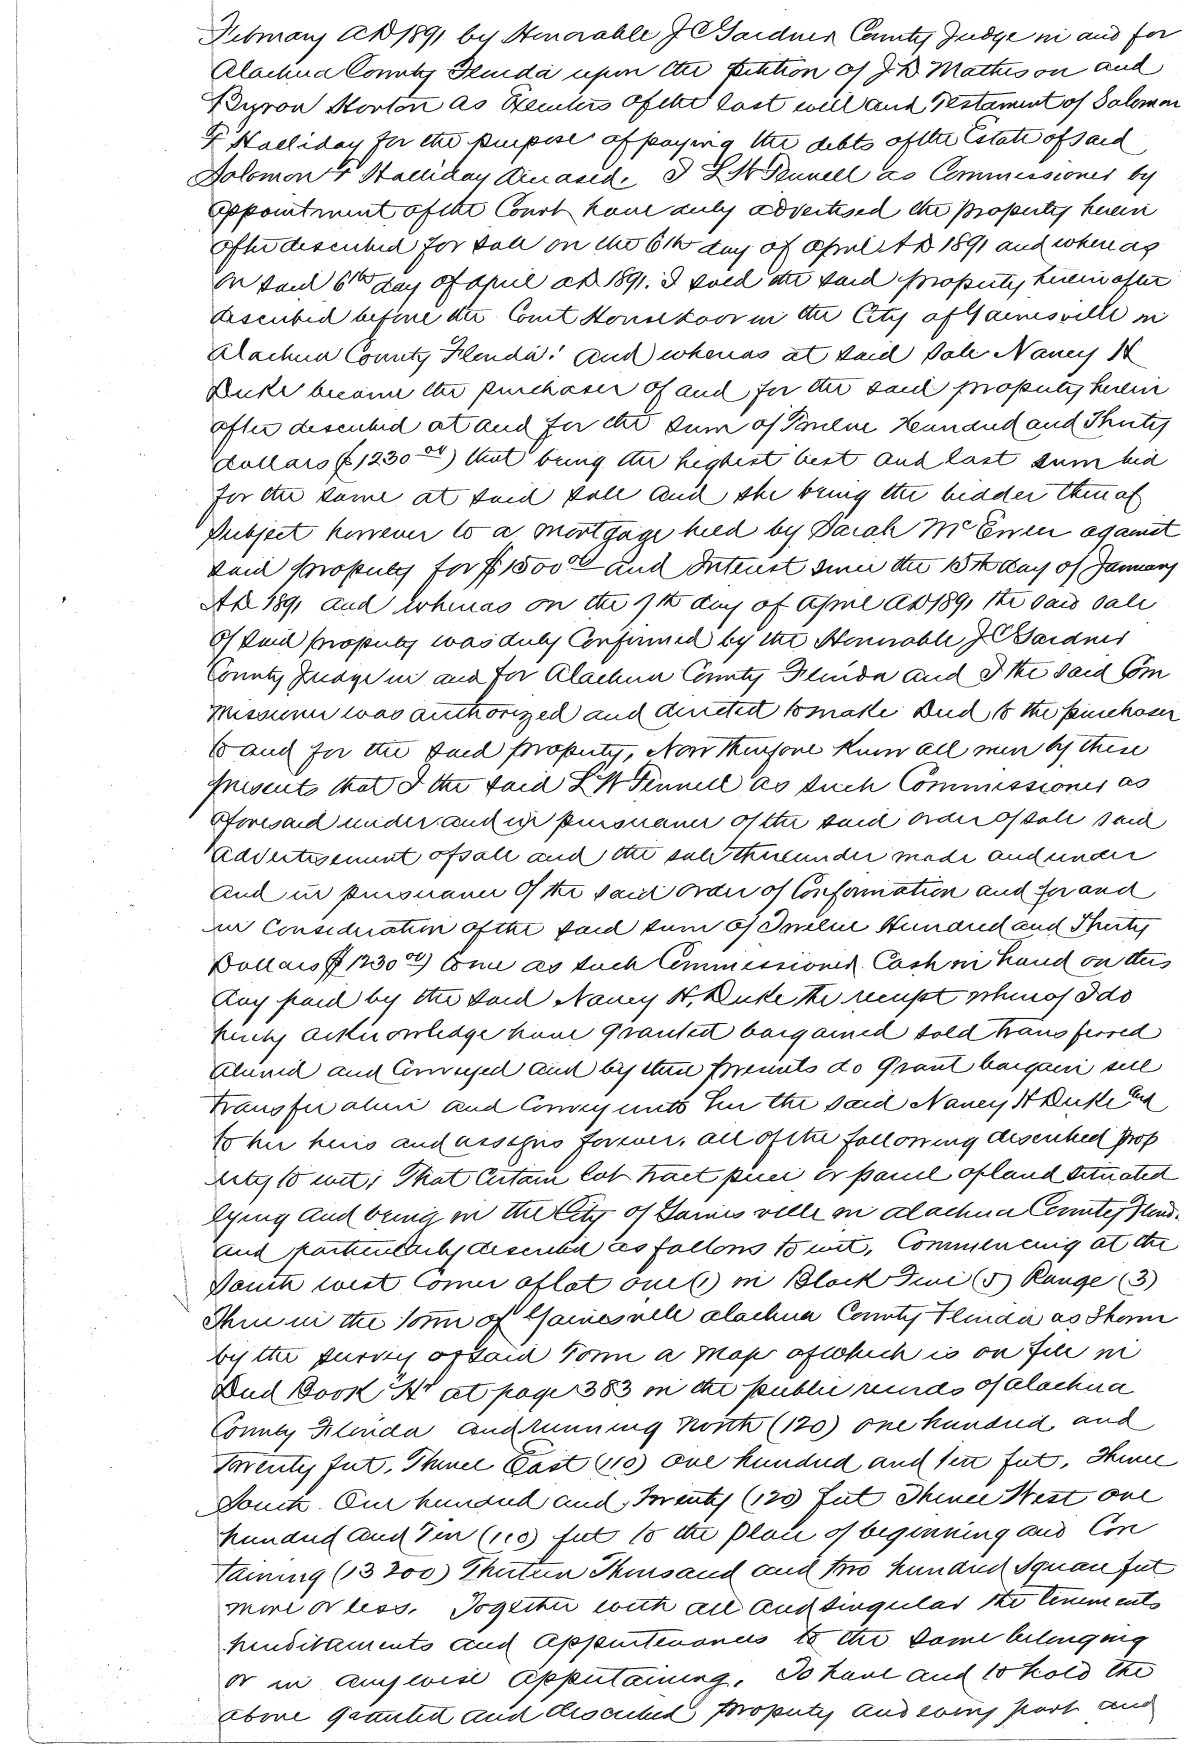 February AD 1891 by Honorable J C Gardner County Judge in and for
Alachua County Florida upon the petition of J D Matheson and
Byron Horton as Exeutors of the last will and Testament of Solomon
F Halliday for the purpose of paying the debts of the Estate of said
Solomon F Halliday deceased. I L W Fennell as Commissioner by
appointment of the Court have duly advertised the property herein
after described for sale on the 6th day of April AD 1891 and whereas
on said 6th day of April AD 1891. I sold the said property hereinafter
described before the Court House door in the City of Gainesville in
Alachua County Florida: and whereas at said sale Nancy H
Duke became the purchaser of and for the said property herein
after described at and for the sum of Twelve Hundred and Thirty
dollars ($1230 00) that being the highest best and last sum bid
for the same at said sale and she being the bidder thereof
Subject however to a mortgage held by Sarah McEwen against
said property for $1500 00 and Interest since the 15th day of January
AD 1891 and whereas on the 7th day of April AD 1891 the said sale
of said property was duly Confirmed by the Honorable J C Gardner
County Judge in and for Alachua County Florida and I the said Com
missioner was authorized and directed to make Deed to the purchaser
to and for the said property, Now Therefore Know all men by these
presents that I the said L W Fennell as such Commissioner as
aforesaid under and in pursuance of the said order of sale said
advertisement of sale and the sale thereunder made and under
and in pursuance of the said order of Confirmation and for and
in Consideration of the said sum of Twelve Hundred and Thirty
Dollars ($1230 00) to me as such Commissioner Cash in hand on this
day paid by the said Nancy H. Duke the receipt whereof I do
hereby acknowledge have granted bargained sold transferred
aliened and Conveyed and by these presents do grant bargain sell
transfer alien and Convey unto her the said Nancy H Duke and
to her heirs and assigns forever. all of the following described prop
erty to wit; That Certain lot tract piece or parcel of land situated
lying and being in the City of Gainesville in Alachua County Florid.
and particularly described as follows to wit, Commencing at the
South west Corner of Lot one (1) in Block Five (5) Range (3)
Three in the Town of Gainesville Alachua County Florida as Shown
by the survey of said Town a Map of which is on file in
Deed Book "H" at page 383 in the public records of Alachua
County Florida and running North (120) one hundred and
Twenty feet. Thence East (110) one hundred and Ten feet. Thence
South One hundred and Twenty (120) feet Thence West one
hundred and Ten (110) feet to the place of beginning and Con
taining (13200) Thirteen Thousand and two hundred Square feet
more or less. Together with all and singular the tenements
hereditaments and appurtenances to the same belonging
or in anywise appertaining. To have and to hold the
above granted and described property and every part and